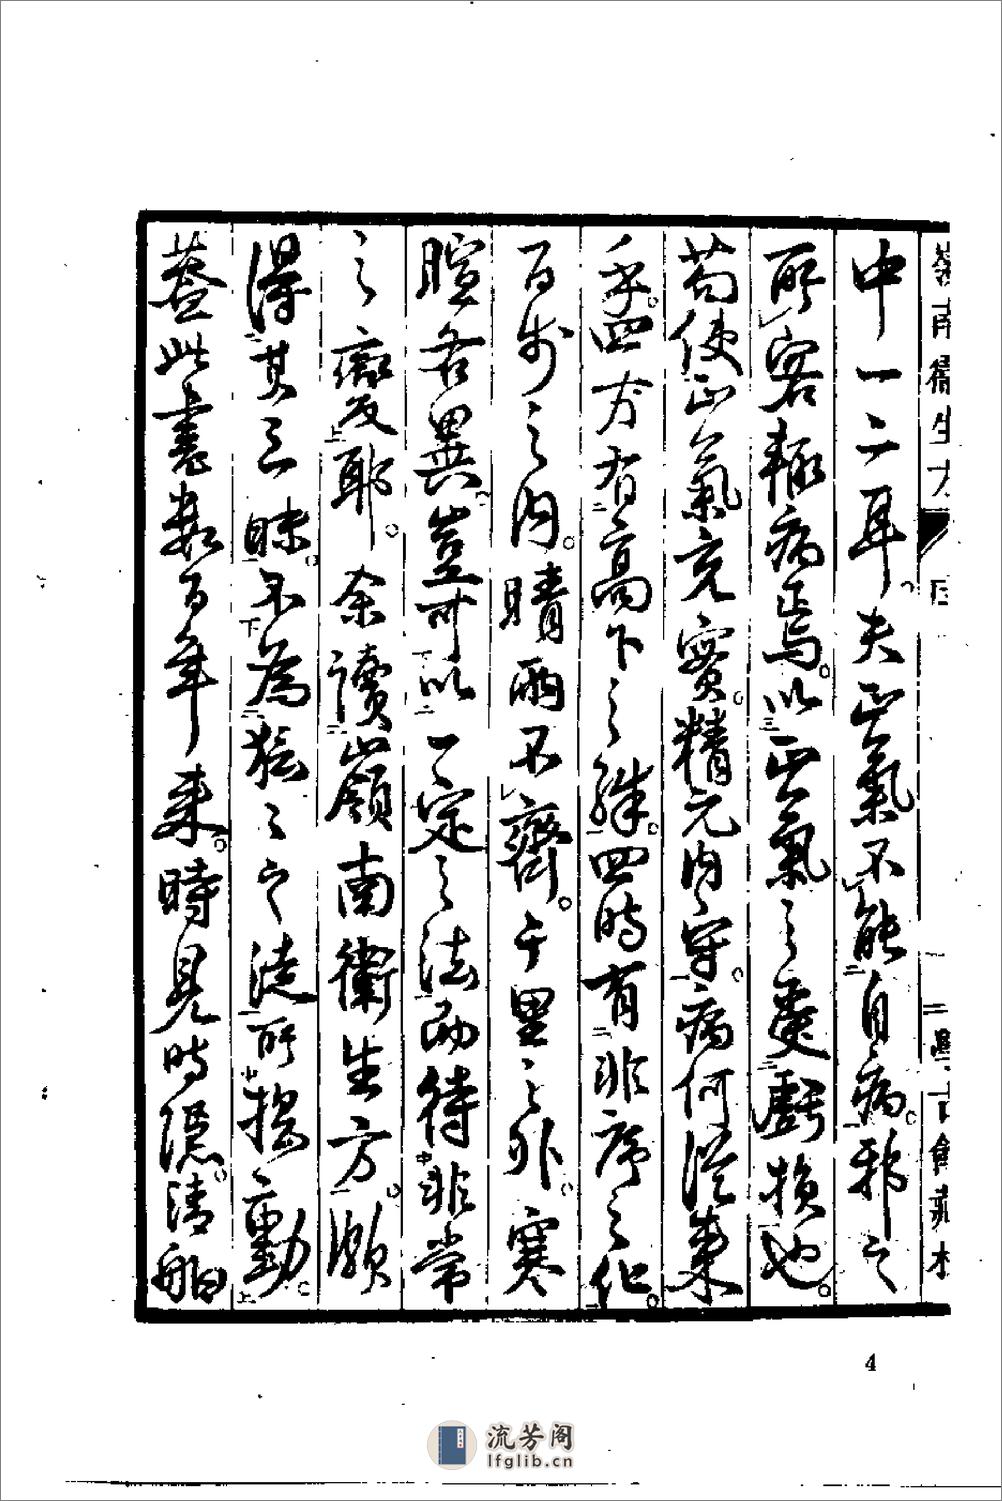 中一二耳夫正氣不能自病邪之
所客輙病焉以正氣之衰虧損也
苟使正氣充實精元内守病何從來
乎四方有高下之殊四時有非序之化
百步之内晴雨不齊千里之外寒
暄各異豈可以一定之法而待非常
之變耶余讀嶺南衛生方頗
得其三昧不為紜之之徒所揺動
蓋此書數百年来時見時隠清舶
嶺南衛生方
4
流芳阁
lfglib.cn